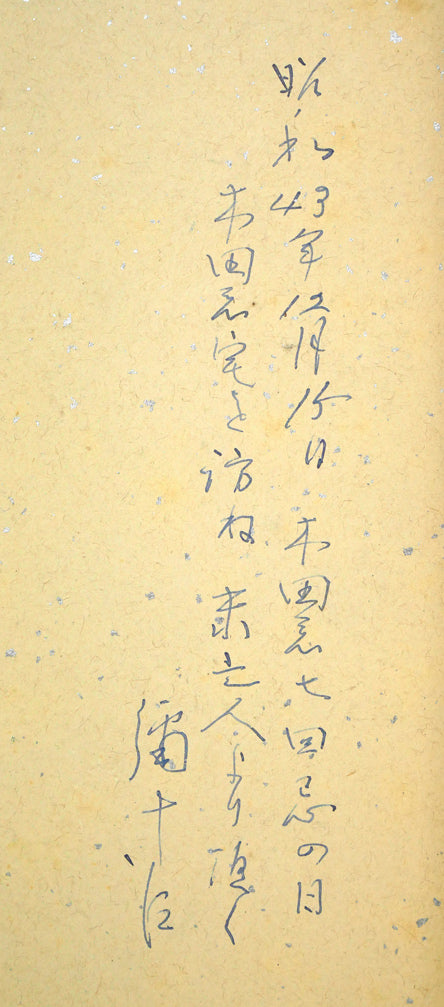 昭和43年12月15日 木田忍七回忌の日
木田忍宅を訪ね 未亡人より頂く
彌十治